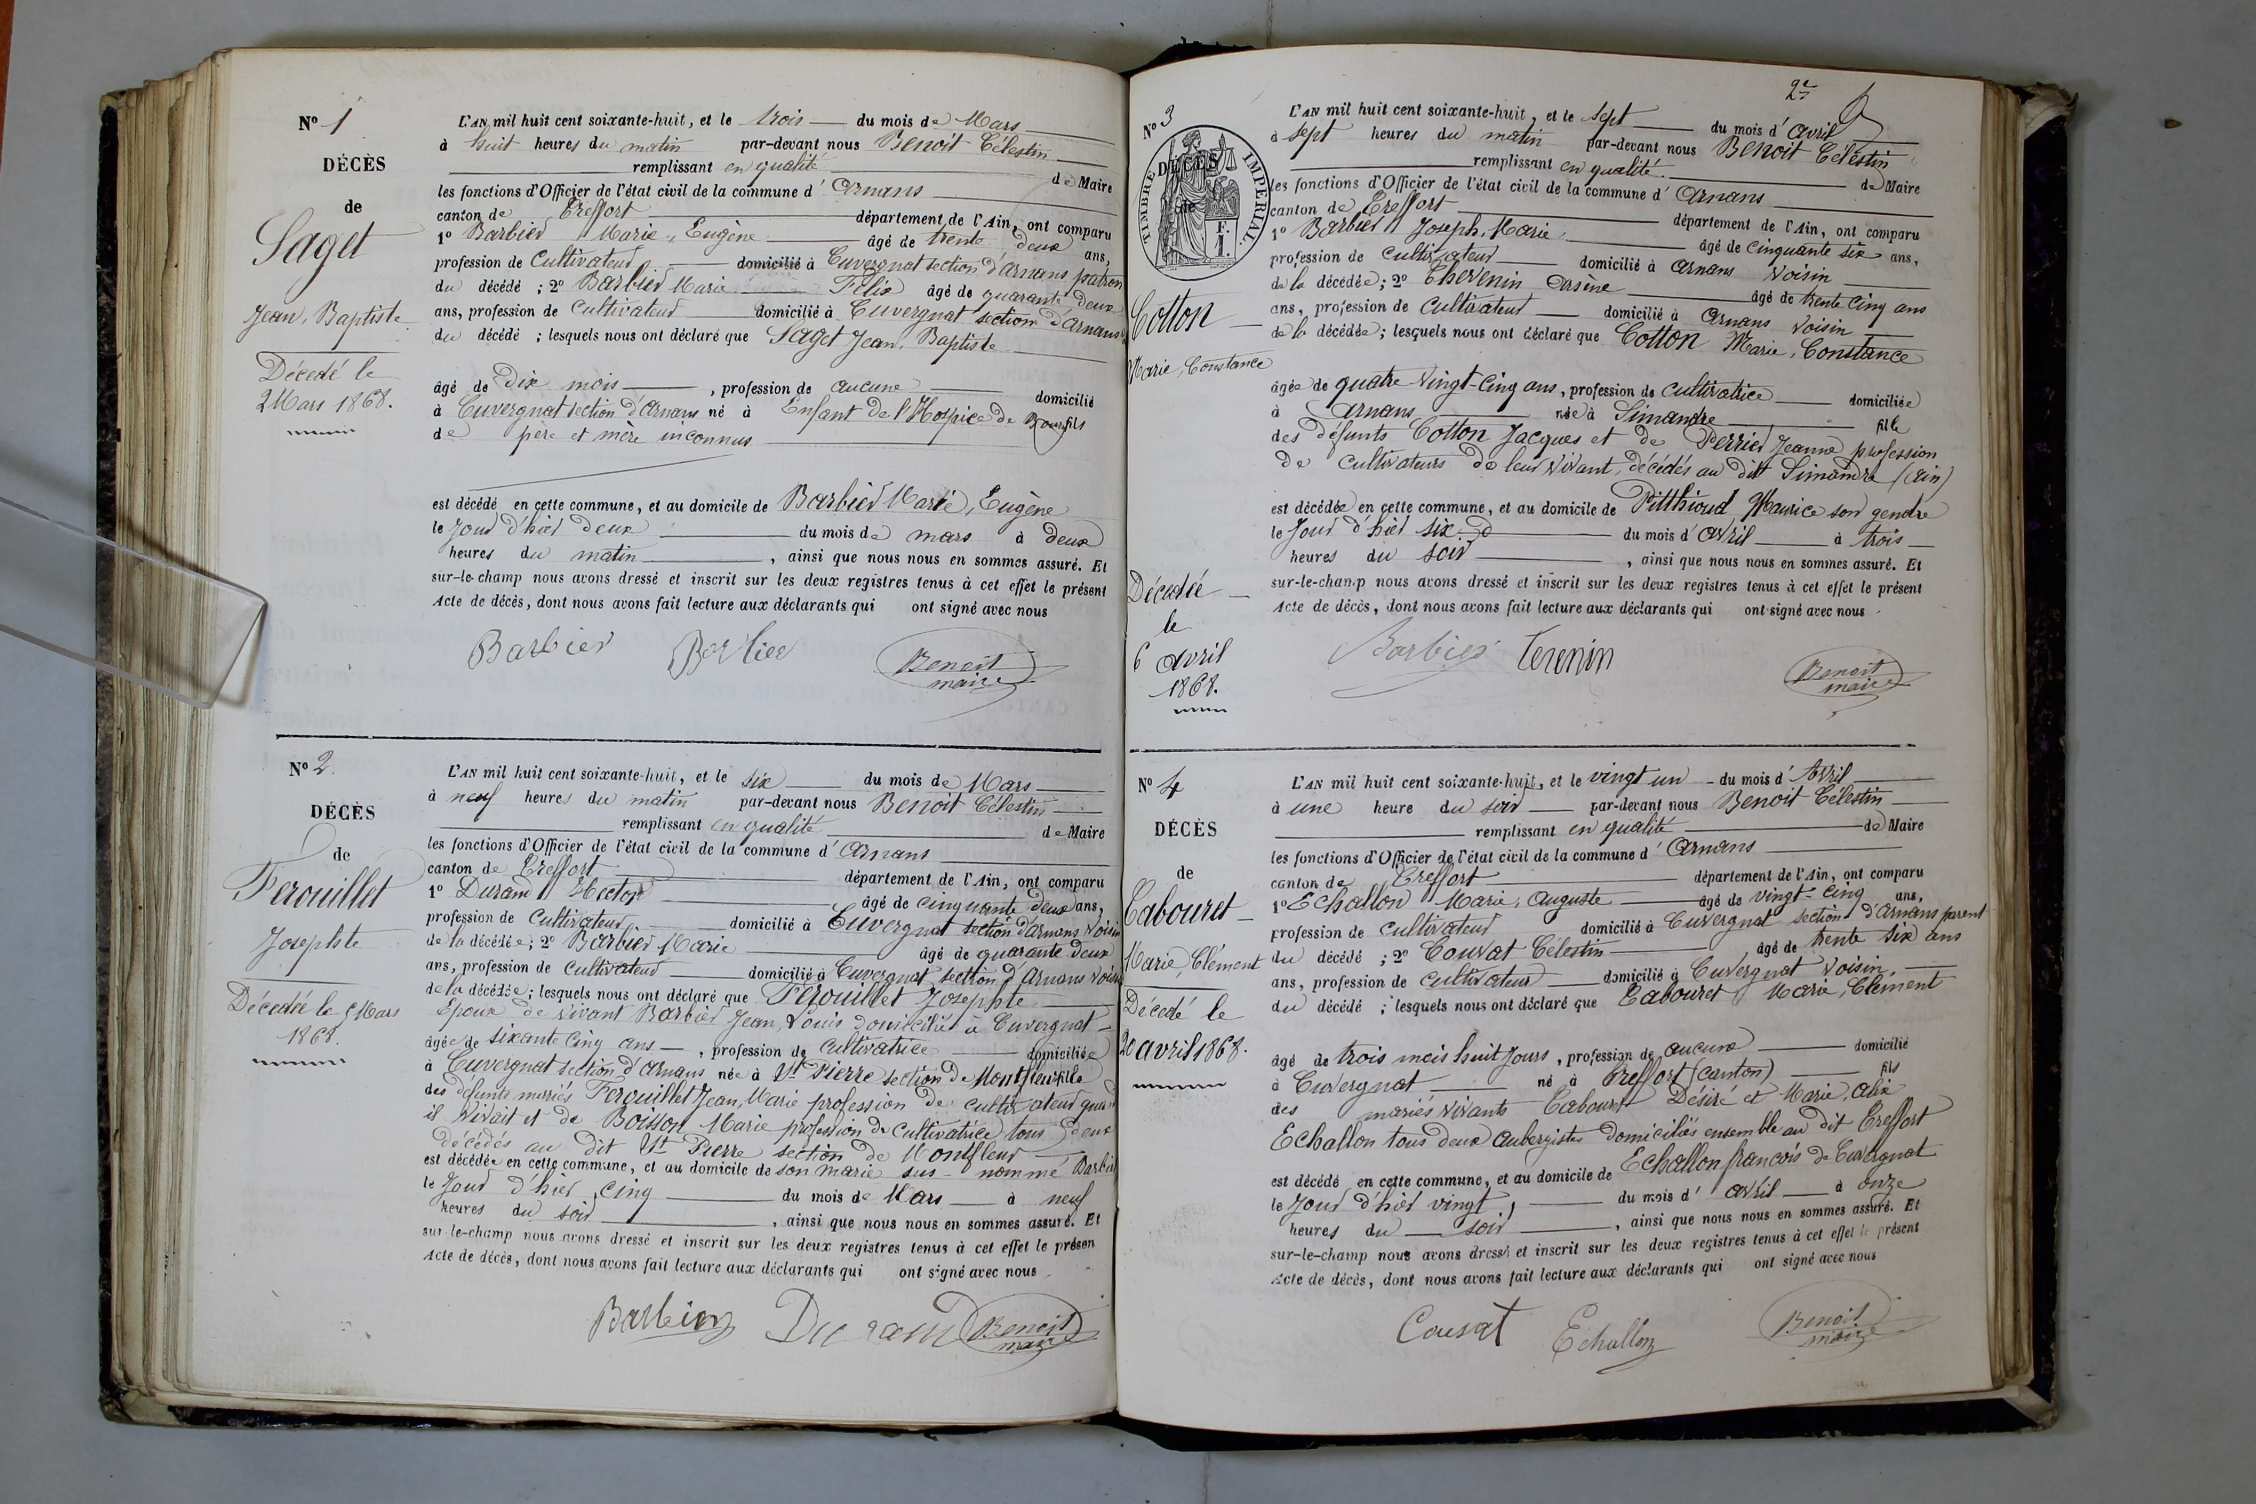 No 1
DÉCÈS
de
Saget
Jean, Baptiste
Décedé le
2 Mars 1868.
L'AN mil huit cent soixante-huit, et le trois du mois de Mars
à huit heures du matin par-devant nous Benoit Célestin
remplissant en qualité de Maire
les fonctions d'Officier de l'état civil de la commune d' Arnans
canton de Treffort département de l'Ain, ont comparu
1° Barbier Marie, Eugène âgé de trente deux ans,
profession de Cultivateur domicilié à Cuvergnat section d'Arnans patron
du décédé ; 2° Barbier Marie Félix âgé de quarante deux
ans, profession de Cultivateur domicilié à Cuvergnat section d'Arnans
du décédé ; lesquels nous ont déclaré que Saget Jean, Baptiste
âgé de Dix mois , profession de aucune domicilié
à Cuvergnat section d'Arnans né à Enfant de l'Hospice de Bourg fils
de père et mère inconnus
est décédé en cette commune, et au domicile de Barbier Marie, Eugène
le Jour d'hier deux du mois de mars à deux
heures du matin , ainsi que nous nous en sommes assuré. Et
sur-le-champ nous avons dressé et inscrit sur les deux registres tenus à cet effet le présent
Acte de décès, dont nous avons fait lecture aux déclarants qui ont signé avec nous
Barbier Barbier Benoit
maire
No 2
DÉCÈS
de
Ferouillet
Josephte
Décedée le 5 Mars
1868.
L'AN mil huit cent soixante-huit, et le six du mois de Mars
à neuf heures du matin par-devant nous Benoit Célestin
remplissant en qualité de Maire
les fonctions d'Officier de l'état civil de la commune d' Arnans
canton de Treffort département de l'Ain, ont comparu
1° Durand Hector âgé de cinquante deux ans,
profession de Cultivateur domicilié à Cuvergnat section d'Arnans Voisin
de la décédée ; 2° Barbier Marie âgé de quarante deux
ans, profession de Cultivateur domicilié à Cuvergnat section d'Arnans Voisin
de la décédée ; lesquels nous ont déclaré que Férouillet Josephte
Epoux de vivant Barbier Jean, Louis domicilié à Cuvergnat
âgée de sixante cinq ans , profession de Cultivatrice domiciliée
à Cuvergnat section d'Arnans née à St Pierre section de Montfleur fille
des défunts mariés Ferouillet Jean, Marie profession de cultivateur quand
il vivait et de Boisson Marie profession de Cultivatrice tous deux
décédés au dit St Pierre section de Montfleur
est décédée en cette commune, et au domicile de son marie sus-nommé Barbier
le Jour d'hier cinq du mois de Mars à neuf
heures du soir , ainsi que nous nous en sommes assuré. Et
sur-le-champ nous avons dressé et inscrit sur les deux registres tenus à cet effet le présen
Acte de décès, dont nous avons fait lecture aux déclarants qui ont signé avec nous
Barbier Durand Benoit
maire
2e
No 3
DÉCÈS
de
TIMBRE IMPÉRIAL
F.
1.
Cotton
Marie, Constance
Décedée
le
6 avril
1868.
L'AN mil huit cent soixante-huit, et le sept du mois d' avril
à sept heures du matin par-devant nous Benoit Célestin
remplissant en qualité de Maire
les fonctions d'Officier de l'état civil de la commune d' Arnans
canton de Treffort département de l'Ain, ont comparu
1° Barbier Joseph, Marie âgé de cinquante six ans,
profession de cultivateur domicilié à Arnans Voisin
de la décédée ; 2° Thevenin Arsène âgé de trente cinq ans
ans, profession de cultivateur domicilié à Arnans Voisin
de la décédée ; lesquels nous ont déclaré que Cotton Marie, Constance
âgée de quatre-vingt-cinq ans , profession de cultivatrice domiciliée
à Arnans née à Simandre fille
des défunts Cotton Jacques et de Perrier Jeanne profession
de cultivateurs de leur vivant, décédés au dit Simandre (Ain)
est décédée en cette commune, et au domicile de Pitthioud Maurice son gendre
le Jour d'hier six du mois d' avril à trois
heures du soir , ainsi que nous nous en sommes assuré. Et
sur-le-champ nous avons dressé et inscrit sur les deux registres tenus à cet effet le présent
Acte de décès, dont nous avons fait lecture aux déclarants qui ont signé avec nous
Barbier Tevenin Benoit
maire
No 4
DÉCÈS
de
Cabouret
Marie, Clément
Décedé le
20 avril 1868.
L'AN mil huit cent soixante-huit, et le vingt un du mois d' Avril
à une heure du soir par-devant nous Benoit Célestin
remplissant en qualité de Maire
les fonctions d'Officier de l'état civil de la commune d' Arnans
canton de Treffort département de l'Ain, ont comparu
1° Echallon Marie, Auguste âgé de vingt-cinq ans,
profession de cultivateur domicilié à Cuvergnat section d'Arnans parent
du décédé ; 2° Couvat Célestin âgé de trente six ans
ans, profession de cultivateur domicilié à Cuvergnat Voisin
du décédé ; lesquels nous ont déclaré que Cabouret Marie, Clément
âgé de trois mois huit Jours , profession de aucune domicilié
à Cuvergnat né à Treffort (canton) fils
des mariés vivants Cabouret Désiré et Marie, Alix
Echallon tous deux aubergistes domiciliés ensemble au dit Treffort
est décédé en cette commune, et au domicile de Echallon françois de Cuvergnat
le Jour d'hier vingt, du mois d' avril à onze
heures du soir , ainsi que nous nous en sommes assuré. Et
sur-le-champ nous avons dressé et inscrit sur les deux registres tenus à cet effet le présent
Acte de décès, dont nous avons fait lecture aux déclarants qui ont signé avec nous
Couvat Echallon Benoit
maire